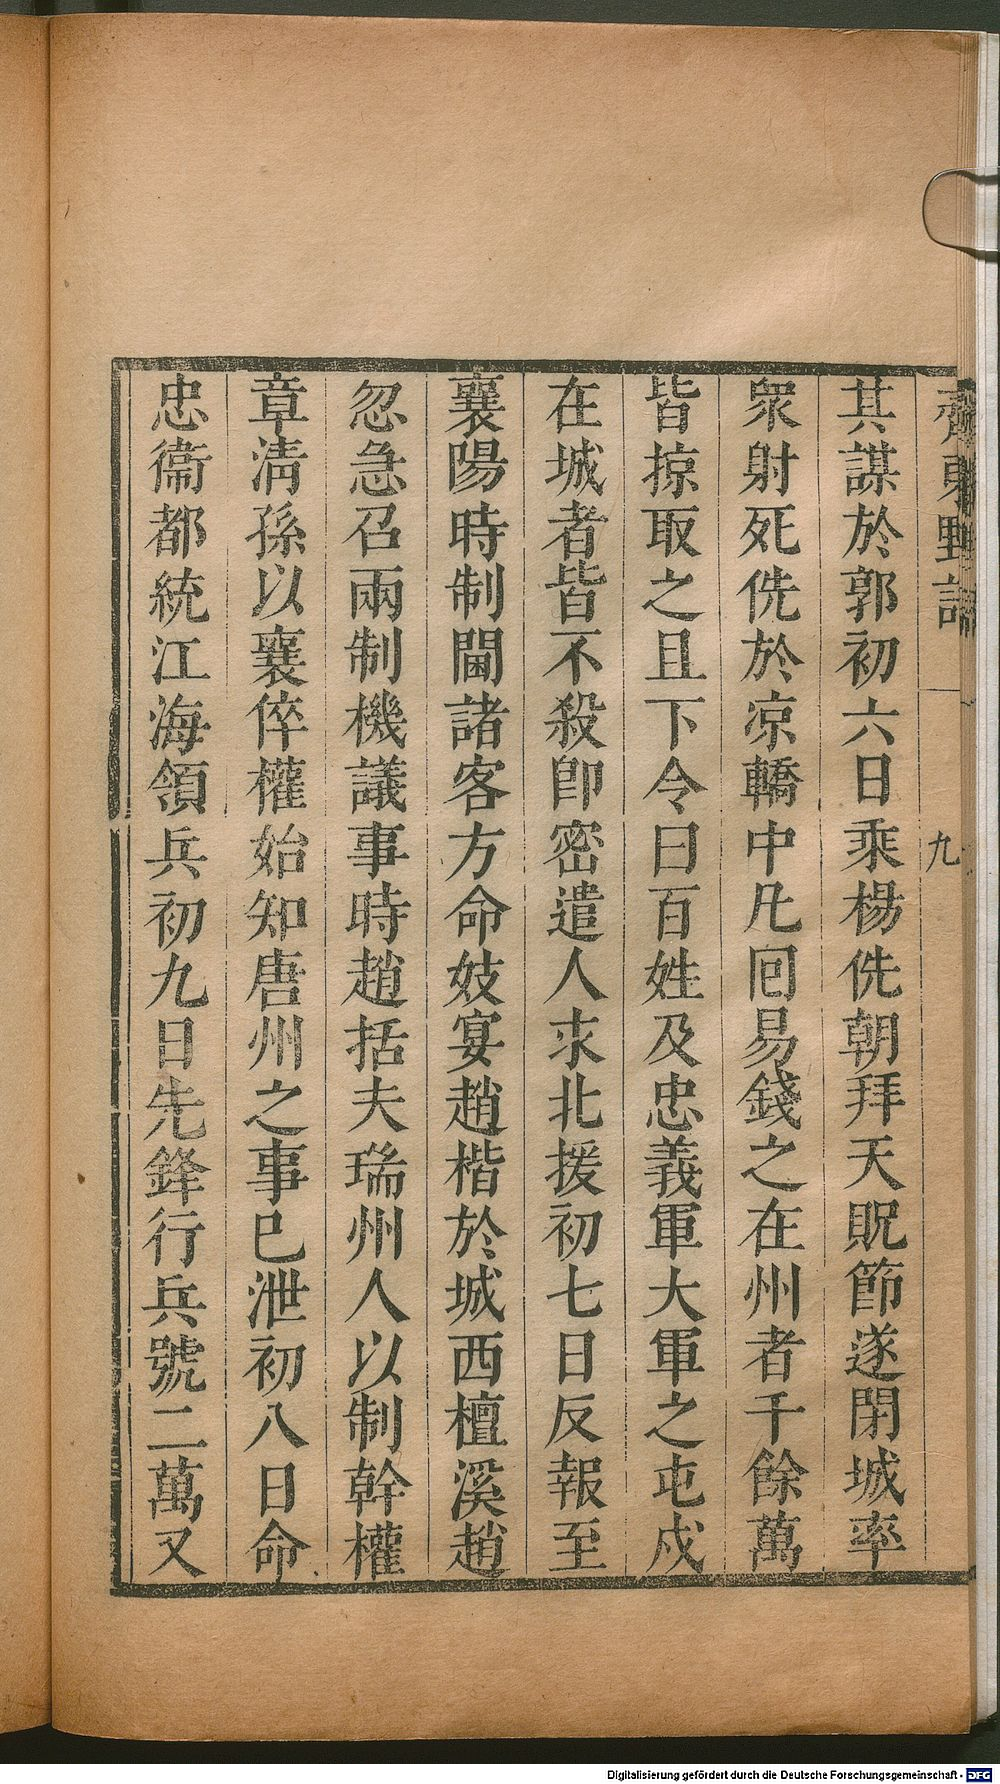 齊東野語
九
其謀於郭初六日乘楊侁朝拜天貺節遂閉城率
衆射死侁於凉轎中凡囘易錢之在州者千餘萬
皆掠取之且下令曰百姓及忠義軍大軍之屯戍
在城者皆不殺卽密遣人求北援初七日反報至
襄陽時制閫諸客方命妓宴趙楷於城西檀溪趙
忽急召兩制機議事時趙括夫瑞州人以制幹權
章淸孫以襄倅權始知唐州之事已泄初八日命
忠衞都統江海領兵初九日先鋒行兵號二萬又
Digitalisierung gefördert durch die Deutsche Forschungsgemeinschaft - DFG